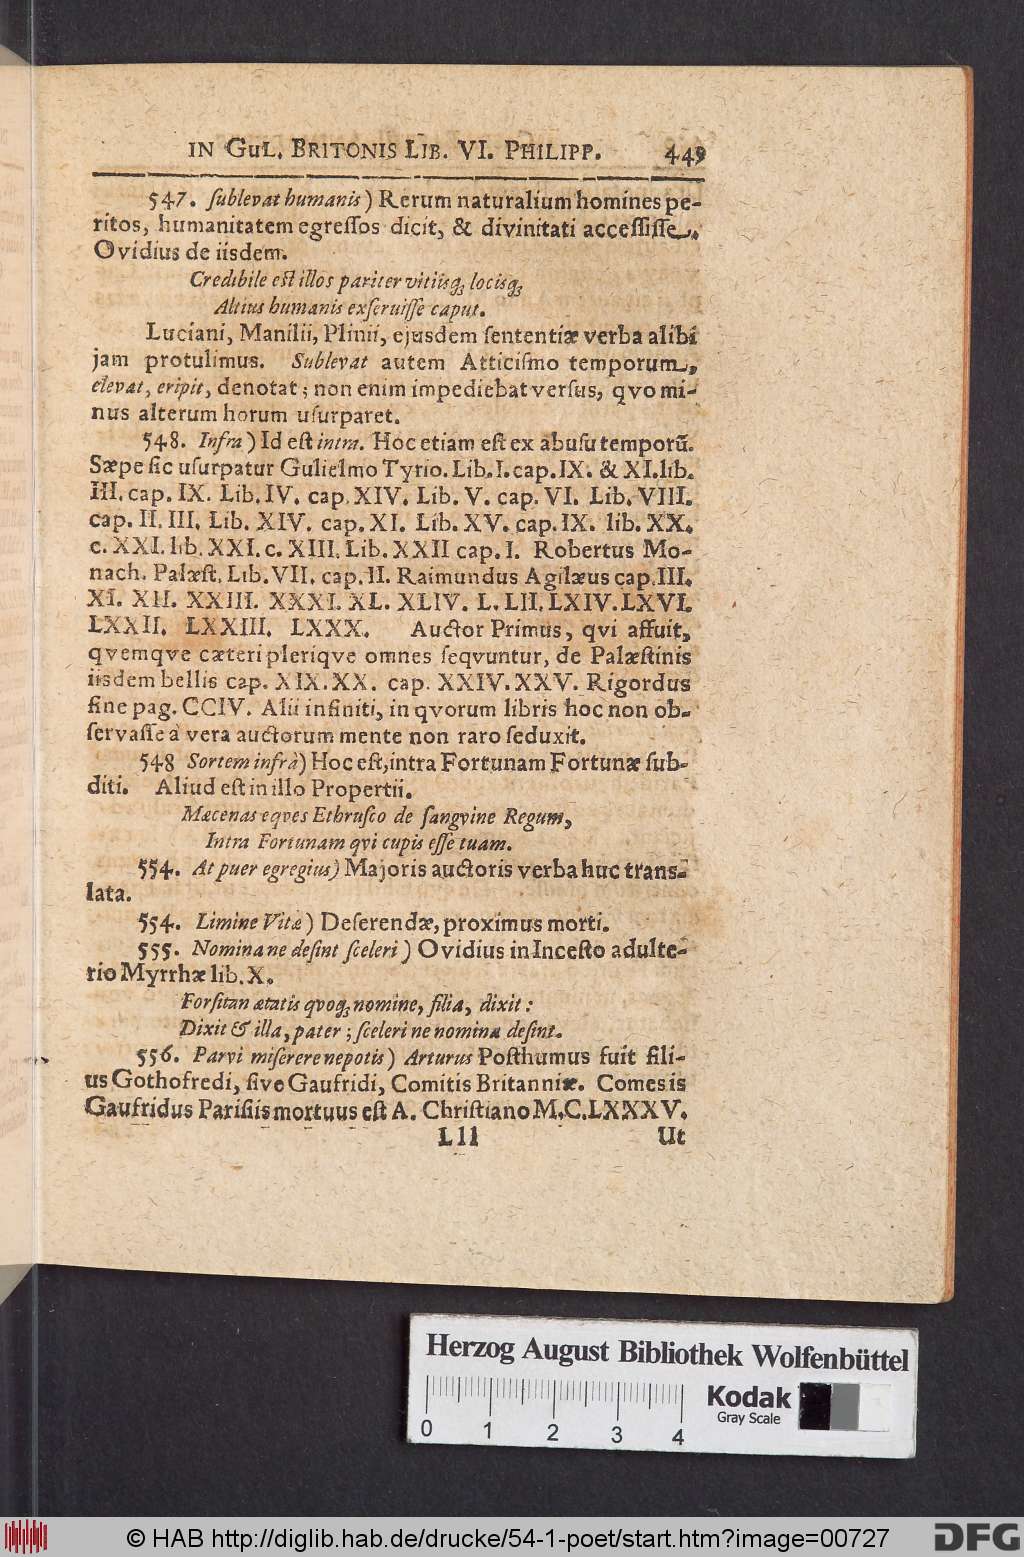 IN GUL. BRITONIS LIB. VI. PHILIPP. 449
547. ſublevat humanis) Rerum naturalium homines pe-
ritos, humanitatem egreſſos dicit, & divinitati acceſſiſſe.
Ovidius de iisdem.
Credibile eſt illos pariter vitiisq́; locisq́;
Altius humanis exſeruiſſe caput.
Luciani, Manilii, Plinii, ejusdem ſententiæ verba alibi
jam protulimus. Sublevat autem Atticiſmo temporum,
elevat, eripit, denotat; non enim impediebat verſus, qvo mi-
nus alterum horum uſurparet.
548. Infra) Id eſt intra. Hoc etiam eſt ex abuſu temporũ.
Sæpe ſic uſurpatur Gulielmo Tyrio. Lib. I. cap. IX. & XI. lib.
III. cap. IX. Lib. IV. cap. XIV. Lib. V. cap. VI. Lib. VIII.
cap. II. III. Lib. XIV. cap. XI. Lib. XV. cap. IX. lib. XX.
c. XXI. lib. XXI. c. XIII. Lib. XXII cap. I. Robertus Mo-
nach. Palæſt. Lib. VII. cap. II. Raimundus Agilæus cap. III.
XI. XII. XXIII. XXXI. XL. XLIV. L. LII. LXIV. LXVI.
LXXII. LXXIII. LXXX. Auctor Primus, qvi affuit,
qvemqve cæteri plerique omnes ſeqvuntur, de Palæſtinis
iisdem bellis cap. XIX. XX. cap. XXIV. XXV. Rigordus
fine pag. CCIV. Alii infiniti, in qvorum libris hoc non ob-
ſervaſſe à vera auctorum mente non raro ſeduxit.
548 Sortem infrà) Hoc eſt, intra Fortunam Fortunæ ſub-
diti. Aliud eſt in illo Propertii.
Mæcenas eqves Ethruſco de ſangvine Regum,
Intra Fortunam qvi cupis eſſe tuam.
554. At puer egregius) Majoris auctoris verba huc trans-
lata.
554. Limine Vitæ) Deſerendæ, proximus morti.
555. Nomina ne deſint ſceleri) Ovidius in Inceſto adulte-
rio Myrrhæ lib. X.
Forſitan ætatis qvoq́; nomine, filia, dixit:
Dixit & illa, pater; ſceleri ne nomina deſint.
556. Parvi miſerere nepotis) Arturus Poſthumus fuit fili-
us Gothofredi, ſive Gaufridi, Comitis Britanniæ. Comes is
Gaufridus Pariſiis mortuus eſt A. Chriſtiano M.C.LXXXV.
Lll Ut
Herzog August Bibliothek Wolfenbüttel
Kodak
Gray Scale
0 1 2 3 4
© HAB http://diglib.hab.de/drucke/54-1-poet/start.htm?image=00727
DFG